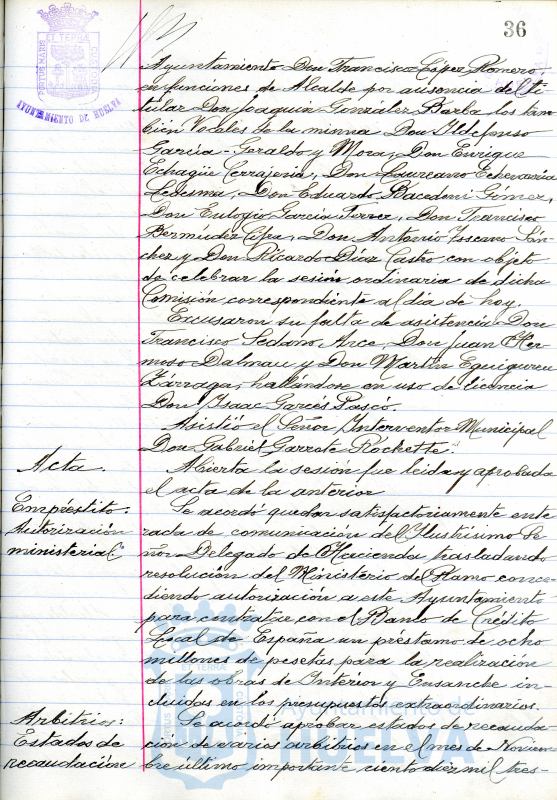 36
PORTUS MARIS ET TERRÆ CUSTODIA
AYUNTAMIENTO DE HUELVA
Ayuntamiento Don Francisco López Romero,
en funciones de Alcalde por ausencia del ti-
tular Don Joaquín González Barba los tam-
bien Vocales de la misma Don Ildefonso
García-Geraldo y Mora, Don Enrique
Echagüe Cerrajería, Don Laureano Echevarría
Ledesma, Don Eduardo Bacedoni Gómez,
Don Eulogio García Ferrer, Don Francisco
Bermúdez Cifra, Don Antonio Toscano Sán-
chez y Don Ricardo Díaz Castro con objeto
de celebrar la sesión ordinaria de dicha
Comisión correspondiente al día de hoy.
Excusaron su falta de asistencia Don
Francisco Sedano Arce, Don Juan Her-
moso Dalmau y Don Martín Eguiguren
Zárraga, hallándose en uso de licencia
Don Isaac Garcés Pascó.
Asistió el Señor Interventor Municipal
Don Gabriel Garrote Rockette.
Acta.
Abierta la sesión fue leida y aprobada
el acta de la anterior
Empréstito:
Autorización
ministerial
Se acordó quedar satisfactoriamente ente-
rada de comunicación del Ilustrísimo Se-
ñor Delegado de Hacienda trasladando
resolución del Ministerio del Ramo conce-
diendo autorización a este Ayuntamiento
para contratar con el Banco de Crédito
Local de España un préstamo de ocho
millones de pesetas para la realización
de las obras de Interior y Ensanche in-
cluidas en los presupuestos extraordinarios.
Arbitrios:
Estados de
recaudación
Se acordó aprobar estados de recauda-
ción de varios arbitrios en el mes de Noviem-
bre último importante ciento diez mil tres-
HUELVA